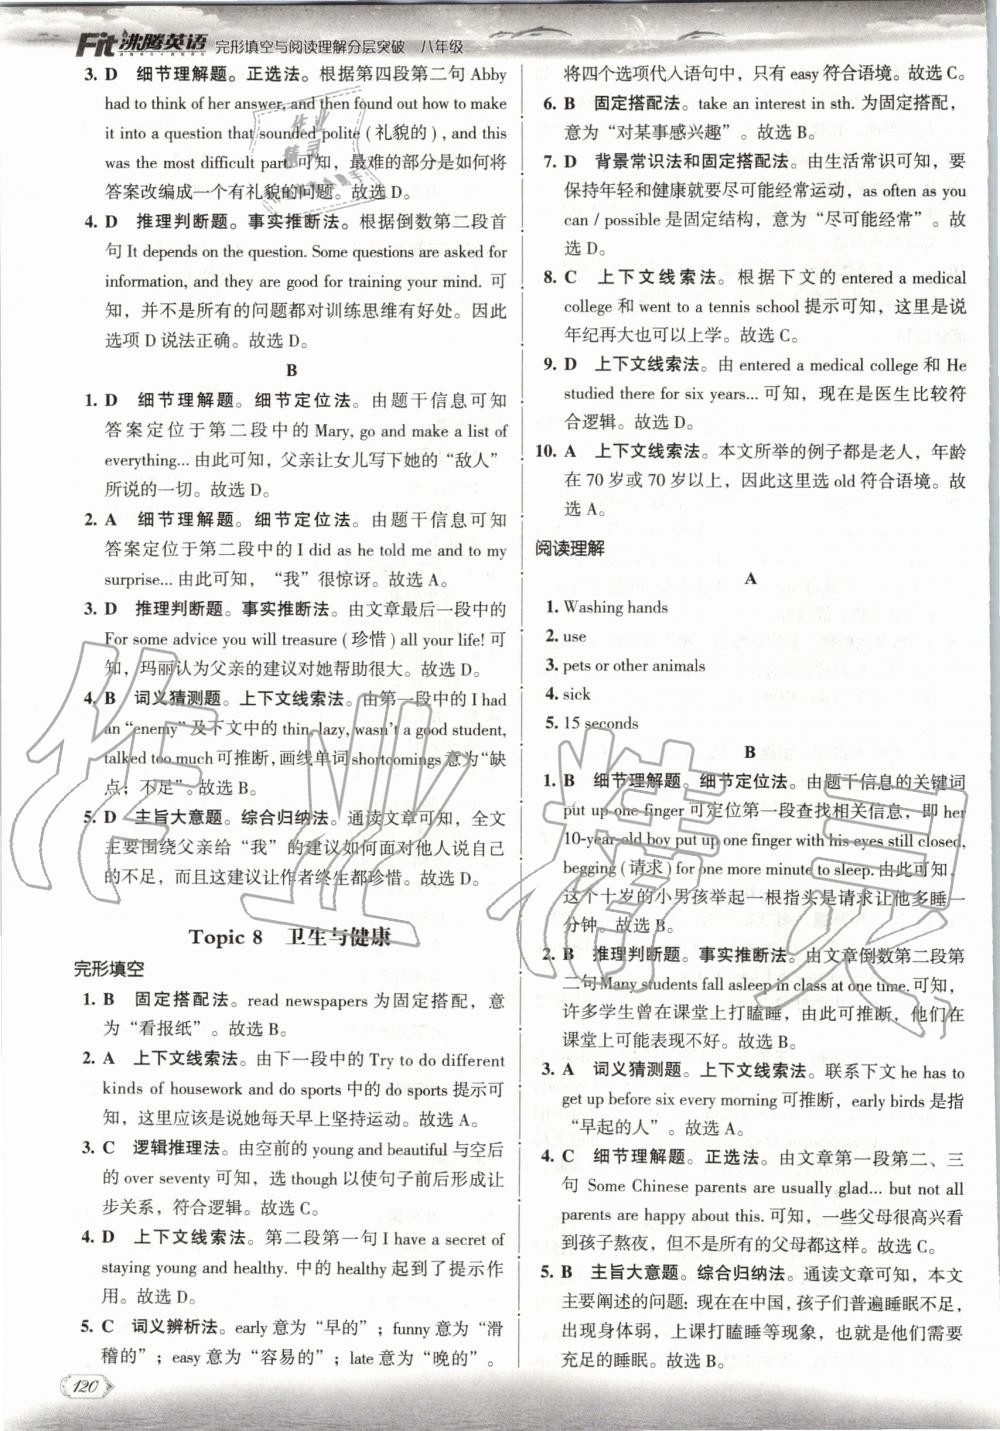 Fit沸腾英语 完形填空与阅读理解分层突破 八年级
3. D 细节理解题。正选法。根据第四段第二句 Abby
had to think of her answer, and then found out how to make
it into a question that sounded polite (礼貌的), and this
was the most difficult part. 可知，最难的部分是如何将
答案改编成一个有礼貌的问题。故选 D。
4. D 推理判断题。事实推断法。根据倒数第二段首
句 It depends on the question. Some questions are asked for
information, and they are good for training your mind. 可
知，并不是所有的问题都对训练思维有好处。因此
选项 D 说法正确。故选 D。
B
1. D 细节理解题。细节定位法。由题干信息可知
答案定位于第二段中的 Mary, go and make a list of
everything... 由此可知，父亲让女儿写下她的“敌人”
所说的一切。故选 D。
2. A 细节理解题。细节定位法。由题干信息可知
答案定位于第二段中的 I did as he told me and to my
surprise... 由此可知，“我”很惊讶。故选 A。
3. D 推理判断题。事实推断法。由文章最后一段中的
For some advice you will treasure (珍惜) all your life! 可
知，玛丽认为父亲的建议对她帮助很大。故选 D。
4. B 词义猜测题。上下文线索法。由第一段中的 I had
an “enemy” 及下文中的 thin, lazy, wasn't a good student,
talked too much 可推断，画线单词 shortcomings 意为“缺
点；不足”。故选 B。
5. D 主旨大意题。综合归纳法。通读文章可知，全文
主要围绕父亲给“我”的建议如何面对他人说自己
的不足，而这建议让作者终生都珍惜。故选 D。
Topic 8 卫生与健康
完形填空
1. B 固定搭配法。read newspapers 为固定搭配，意
为“看报纸”。故选 B。
2. A 上下文线索法。由下一段中的 Try to do different
kinds of housework and do sports 中的 do sports 提示可
知，这里应该是说她每天早上坚持运动。故选 A。
3. C 逻辑推理法。由空前的 young and beautiful 与空后
的 over seventy 可知，选 though 以使句子前后形成让
步关系，符合逻辑。故选 C。
4. D 上下文线索法。第二段第一句 I have a secret of
staying young and healthy. 中的 healthy 起到了提示作
用。故选 D。
5. C 词义辨析法。early 意为“早的”；funny 意为“滑
稽的”；easy 意为“容易的”；late 意为“晚的”。
将四个选项代入语句中，只有 easy 符合语境。故选 C。
6. B 固定搭配法。take an interest in sth. 为固定搭配，
意为“对某事感兴趣”。故选 B。
7. D 背景常识法和固定搭配法。由生活常识可知，要
保持年轻和健康就要尽可能经常运动，as often as you
can / possible 是固定结构，意为“尽可能经常”。故
选 D。
8. C 上下文线索法。根据下文的 entered a medical
college 和 went to a tennis school 提示可知，这里是说
年纪再大也可以上学。故选 C。
9. D 上下文线索法。由 entered a medical college 和 He
studied there for six years... 可知，现在是医生比较符
合逻辑。故选 D。
10. A 上下文线索法。本文所举的例子都是老人，年龄
在 70 岁或 70 岁以上，因此这里选 old 符合语境。故
选 A。
阅读理解
A
1. Washing hands
2. use
3. pets or other animals
4. sick
5. 15 seconds
B
1. B 细节理解题。细节定位法。由题干信息的关键词
put up one finger 可定位第一段查找相关信息，即 her
10-year-old boy put up one finger with his eyes still closed,
begging (请求) for one more minute to sleep. 由此可知，
这个十岁的小男孩举起一根指头是请求让他多睡一
分钟。故选 B。
2. B 推理判断题。事实推断法。由文章倒数第二段第
二句 Many students fall asleep in class at one time. 可知，
许多学生曾在课堂上打瞌睡，由此可推断，他们在
课堂上可能表现不好。故选 B。
3. A 词义猜测题。上下文线索法。联系下文 he has to
get up before six every morning 可推断，early birds 是指
“早起的人”。故选 A。
4. C 细节理解题。正选法。由文章第一段第二、三
句 Some Chinese parents are usually glad... but not all
parents are happy about this. 可知，一些父母很高兴看
到孩子熬夜，但不是所有的父母都这样。故选 C。
5. B 主旨大意题。综合归纳法。通读文章可知，本文
主要阐述的问题：现在在中国，孩子们普遍睡眠不足，
出现身体弱，上课打瞌睡等现象，也就是他们需要
充足的睡眠。故选 B。
120
作业精灵